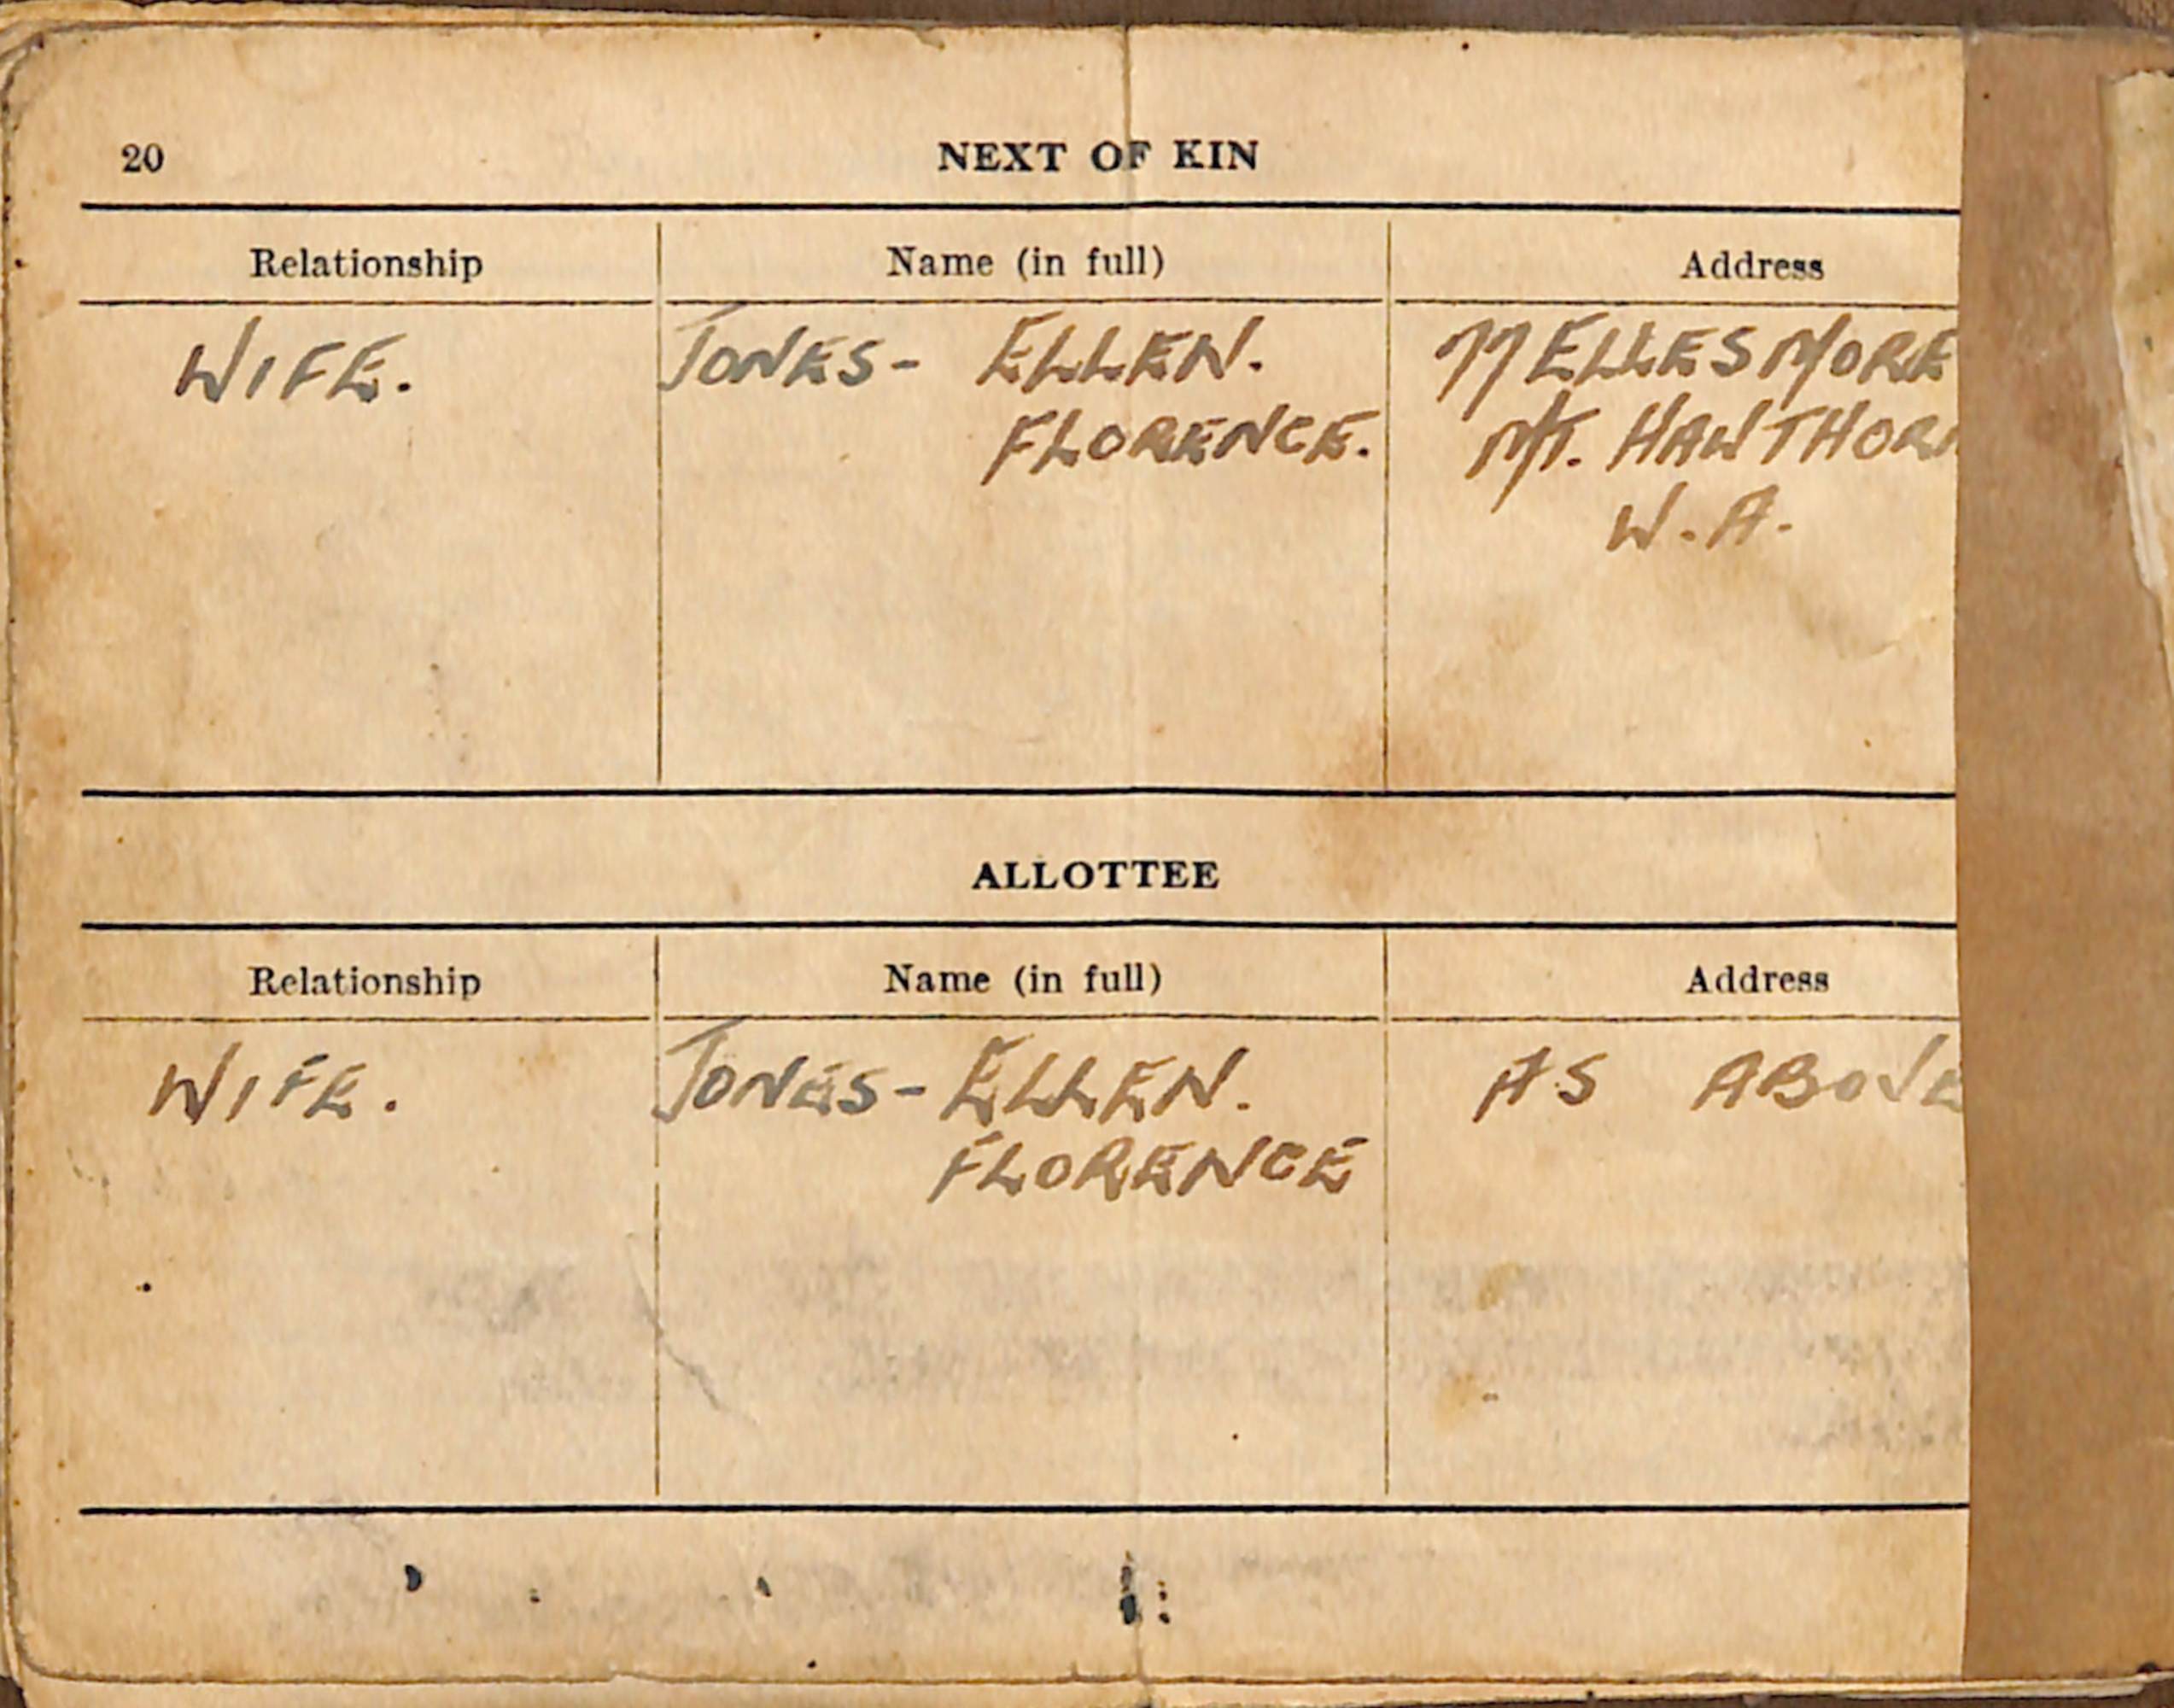 20 NEXT OF KIN
Relationship Name (in full) Address
WIFE. JONES- ELLEN. 77 ELLESMORE
FLORENCE. MT. HAWTHOR
W.A.
ALLOTTEE
Relationship Name (in full) Address
WIFE. JONES- ELLEN. AS ABOVE
FLORENCE